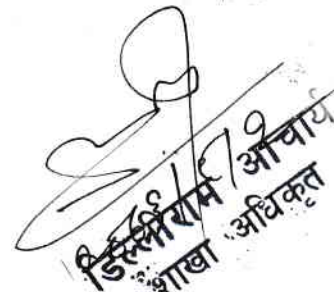 डिल्लीराम आचार्य
शाखा अधिकृत